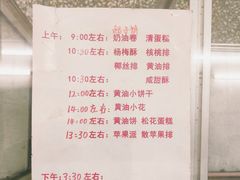 上午: 9:00左右: 奶油卷 清蛋糕
10:30左右: 杨梅酥 核桃排
椰丝排 黄油排
10:30左右: 咸甜酥
12:00左右: 黄油小饼干
14:00左右: 黄油小花
14:00左右: 黄油饼 松花蛋糕
13:30左右: 苹果派 散苹果排
下午: 3:30左右: